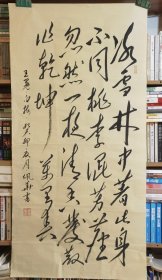 冰雪林中著此身
不同桃李混芳塵
忽然一夜清香發散
作乾坤萬里春
王冕白梅 癸卯 月 書